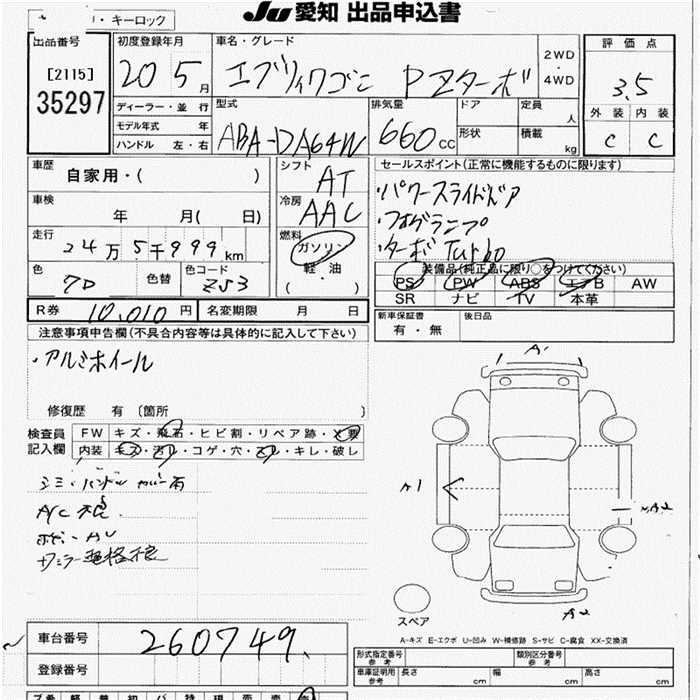 Ju 愛知 出品申込書
・キーロック
出品番号
[2115]
35297
初度登録年月
20 5月
ディーラー・並行
モデル年式 年
ハンドル 左・右
車名・グレード
エブリィワゴン PZターボ
2WD
・
4WD
型式
ABA-DA64W
排気量
660cc
ドア
形状
定員
人
積載
kg
評価点
3.5
外装 内装
C C
車歴
自家用・( )
車検
年 月( 日)
走行
24万5千999km
色
色替
色コード
ZS3
シフト
AT
冷房
AAC
燃料
ガソリン
軽・油
( )
セールスポイント(正常に機能するものに限ります)
・パワースライドドア
・フォグランプ
・ターボ Turbo
装備品(純正品に限り○をつけてください)
PS PW ABS エアB AW
SR ナビ TV 本革
R券 10,010円
名変期限 月 日
新車保証書
有・無
後日品
注意事項申告欄(不具合内容等は具体的に記入して下さい)
・アルミホイール
修復歴 有 〔箇所 〕
検査員
記入欄
FW キズ・飛石・ヒビ割・リペア跡・X要
内装 キズ・汚レ・コゲ・穴・スレ・キレ・破レ
シミ・ハンドル カバー有
A/C
A1
A1
A2
A2
スペア
A-キズ E-エクボ U-凹み W-補修跡 S-サビ C-腐食 XX-交換済
車台番号
260749
登録番号
形式指定番号
参考
類別区分番号
参考
車庫証明用
参考
長さ cm
幅 cm
高さ cm